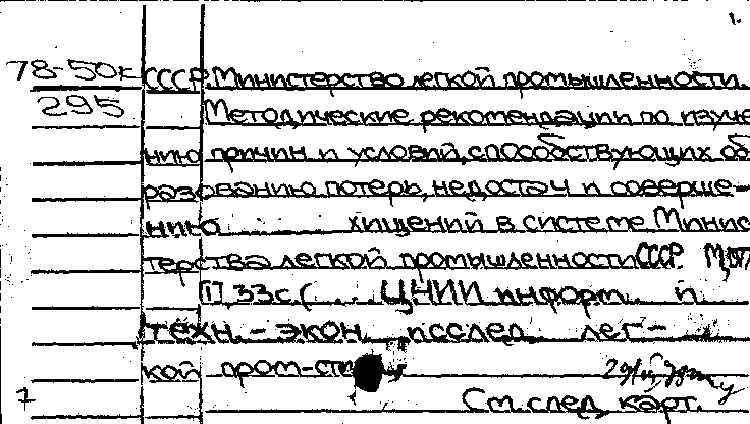 1.
78-50к СССР. Министерство легкой промышленности.
295 Методические рекомендации по изуче
нию причин и условий, способствующих об
разованию потерь, недостач и соверше-
нию хищений в системе Минис
терства легкой промышленности СССР.
33с. (... ЦНИИ информ. и
техн.-экон. исслед. лег-
кой пром-сти
См. след. карт.